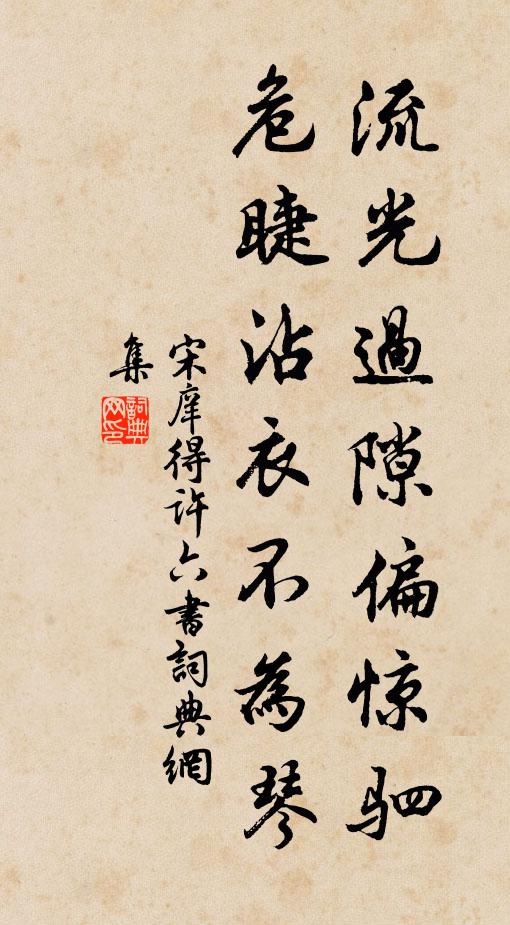 流光過隙偏惊驷
危睫沾衣不為琴
宋庠得許六書詞典網
集
詞典網印